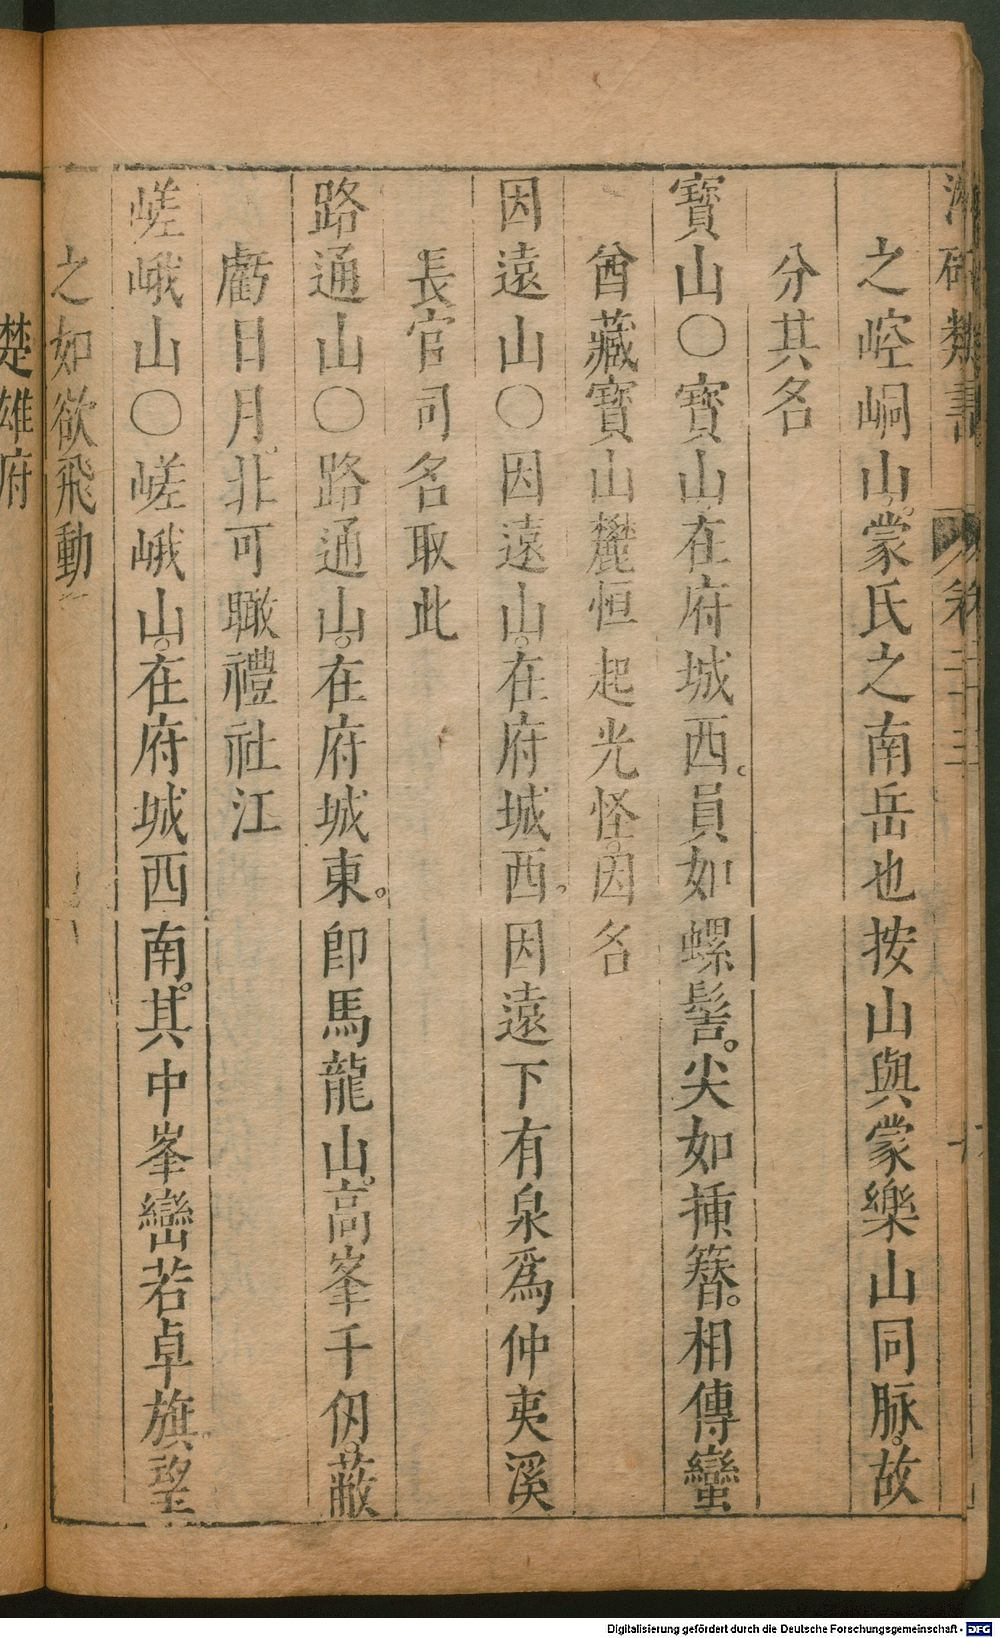 類書 卷 二十三
之崆峒山。蒙氏之南岳也按山與蒙樂山同脉。故
分其名
寶山○寶山在府城西。員如螺髻。尖如揷簪。相傳蠻
酋藏寶山麓恒起光怪。因名
因遠山○因遠山。在府城西。因遠下有泉爲仲夷溪
長官司名取此
路通山○路通山。在府城東。卽馬龍山。高峯千仭。蔽
虧日月。非可瞰禮社江
嵯峨山○嵯峨山。在府城西南。其中峯巒若卓旗望
之如欲飛動
楚雄府
Digitalisierung gefördert durch die Deutsche Forschungsgemeinschaft - DFG